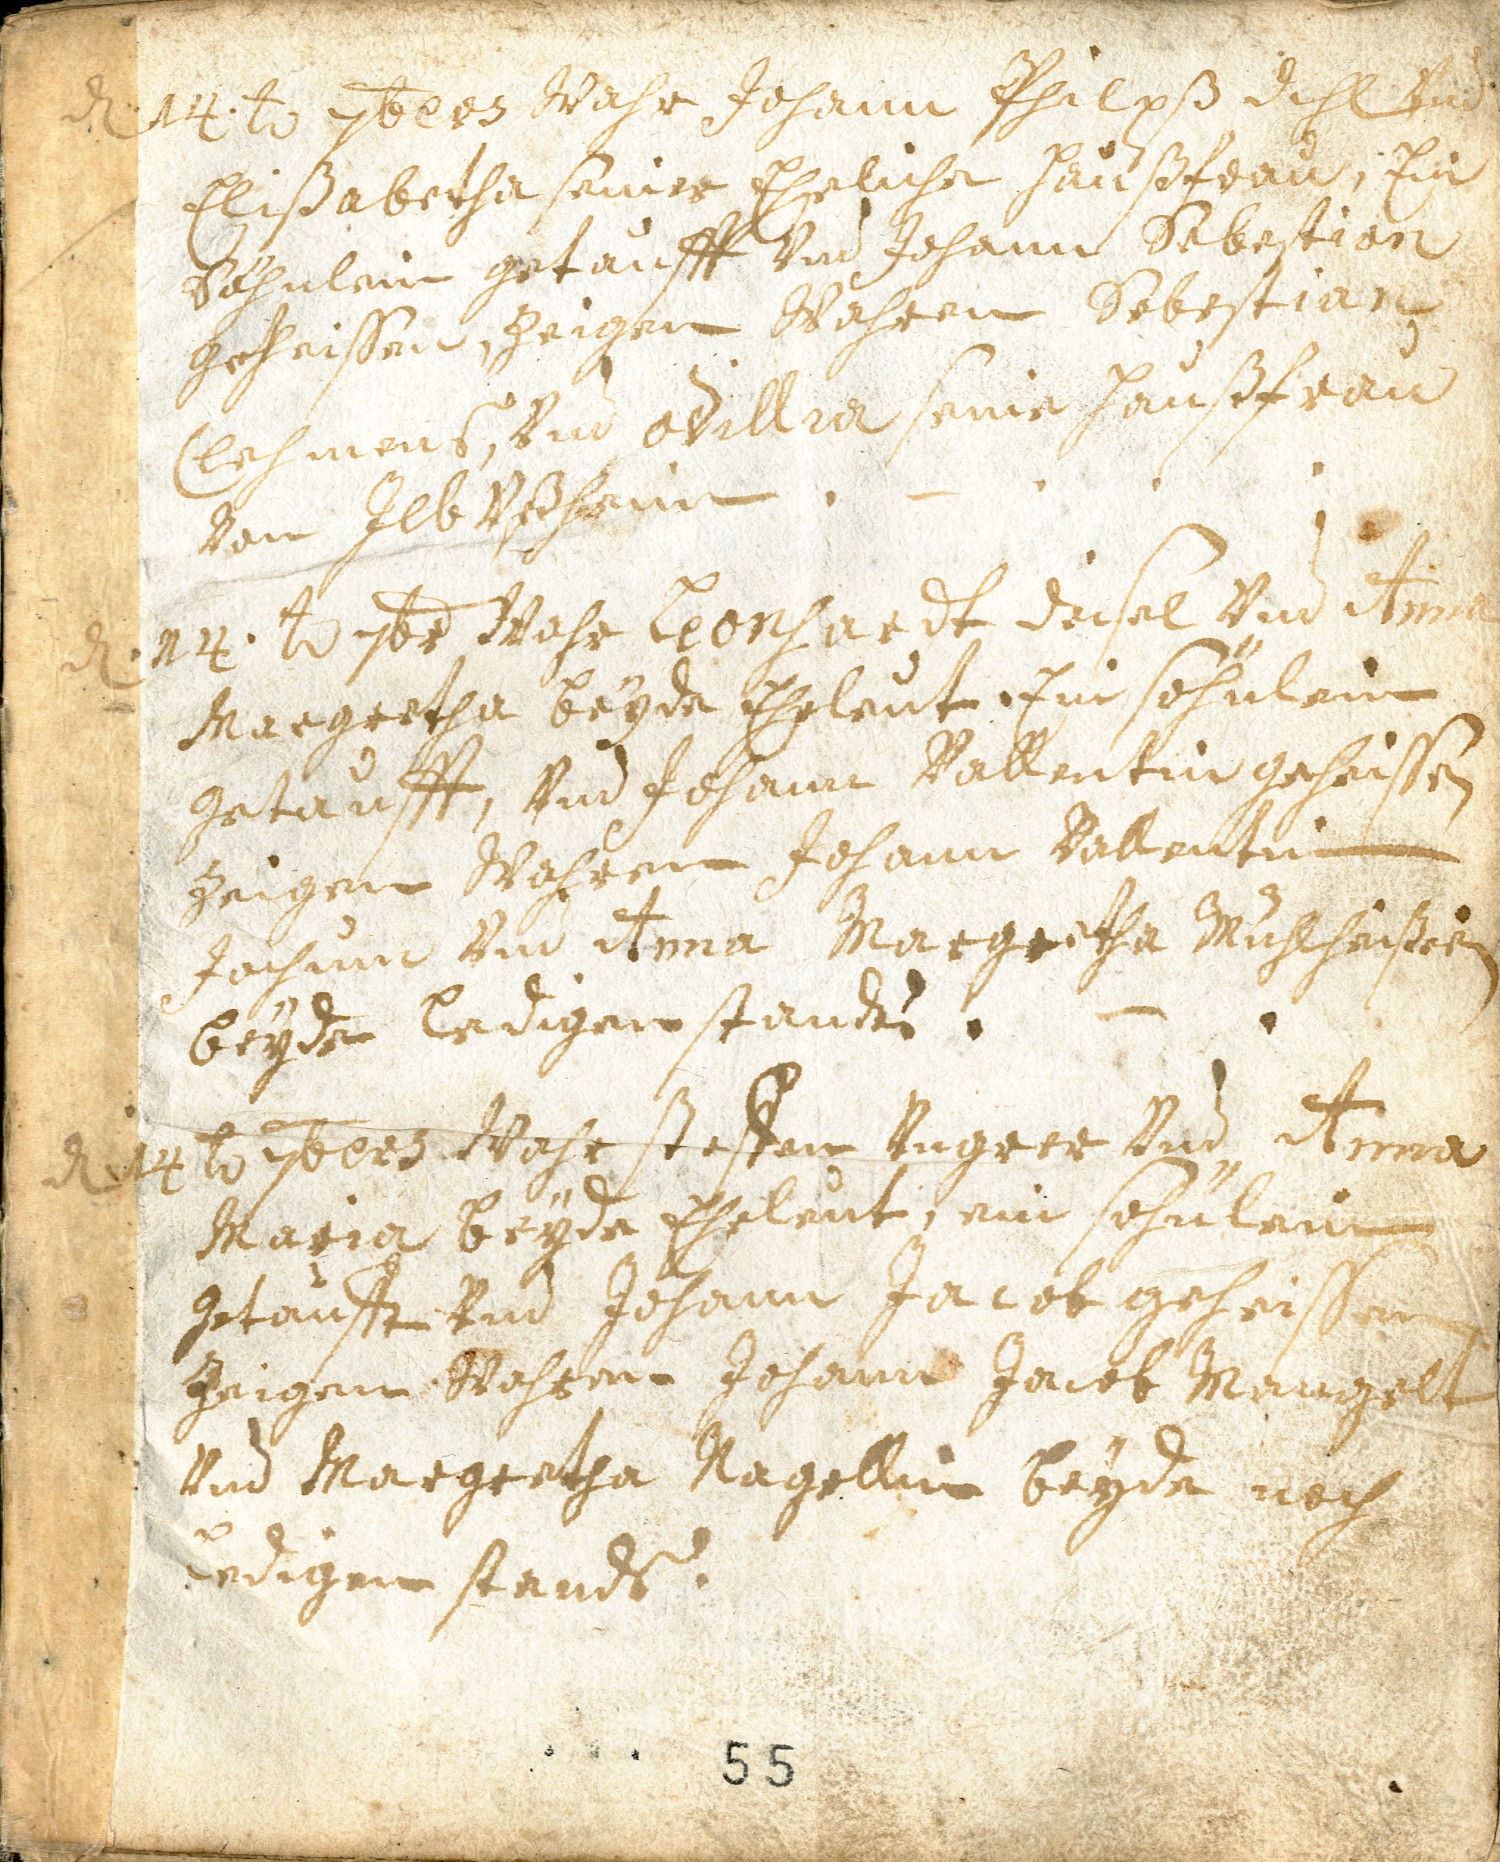 d. 14. to 7bers Wahr Johann Philpß dihl Vnd
Elißabetha seiner Eheliche haußfrau, Ein
Söhnlein getaufft Vnd Johann Sebestian
geheissen, Zeigen Wahren Sebestian
Clehmens, Vnd odillia seine haußfrau
Von Jlb Vßheim . – . . .
d. 14. to 7br Wahr Leonhardt deisel Vnd Anna
Margretha beÿde Eheleut. Ein söhnlein
getaufft, Vnd Johann Vallentin geheissen
Zeigen Wahren Johann Vallentin
Jochum Vnd Anna Margretha
beÿde Ledigen standes . – .
d. 14 to 7bers Wahr steffen Vngrer Vnd Anna
Maria beÿde Eheleut, ein söhnlein
getaufft Vnd Johann Jacob geheissen
Zeigen Wahren Johann Jacob
Vnd Margretha Nagellin beÿde noch
Ledigen stands.
55